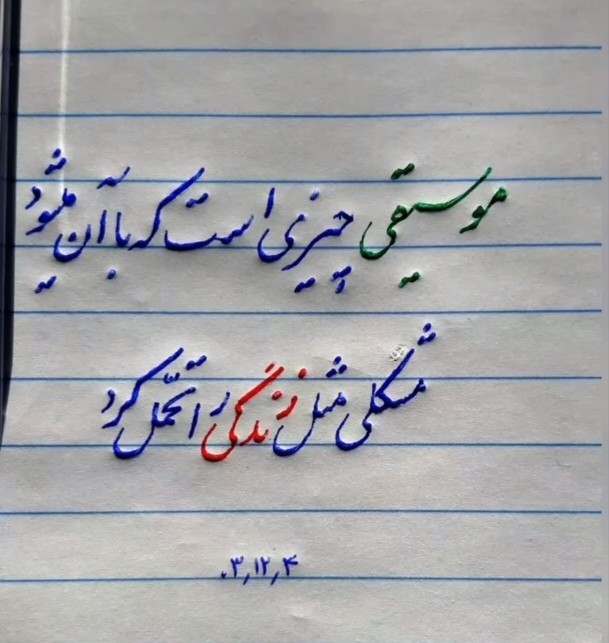 موسیقی چیزی است که با آن میشود
مشکلی مثل زندگی را تحّمل کرد
۳,۱۲,۴.